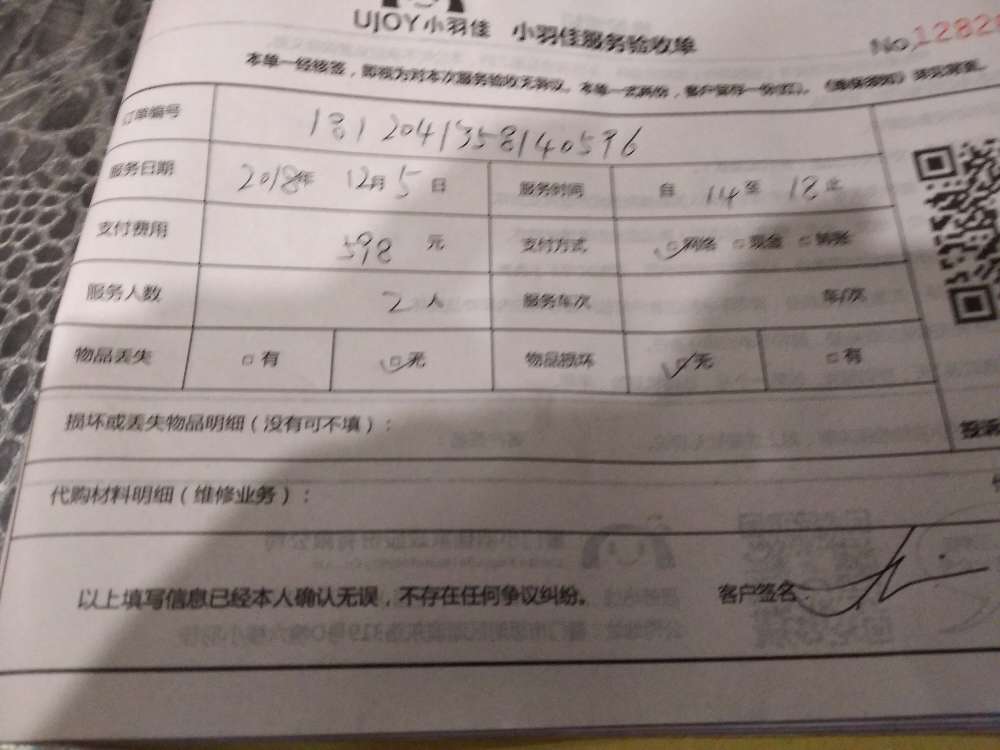 UJOY小羽佳 小羽佳服务验收单
No.1282
本单一经接签，即视为对本次服务验收无异议。本单一式两份，客户留存一份(红)。
订单编号 1812041358140596
服务日期 2018年 12月 5日 服务时间 自 14 至 18 止
支付费用 598 元 支付方式 网络 现金 转账
服务人数 2人 服务车次 车/次
物品丢失 有 无 物品损坏 无 有
损坏或丢失物品明细（没有可不填）：
代购材料明细（维修业务）：
以上填写信息已经本人确认无误，不存在任何争议纠纷。 客户签名：